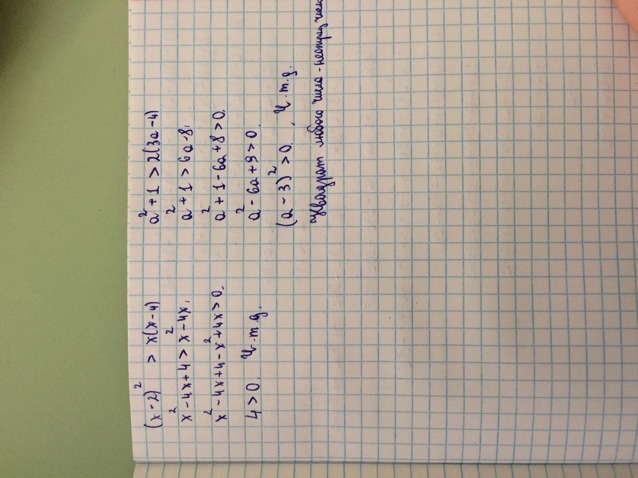 (x-2)² > x(x-4)
x²-4x+4 > x²-4x,
x²-4x+4-x²+4x>0,
4>0. Ч.т.д.
a²+1>2(3a-4)
a²+1>6a-8,
a²+1-6a+8>0,
a²-6a+9>0.
(a-3)²>0, Ч.т.д.
Квадрат любого числа -